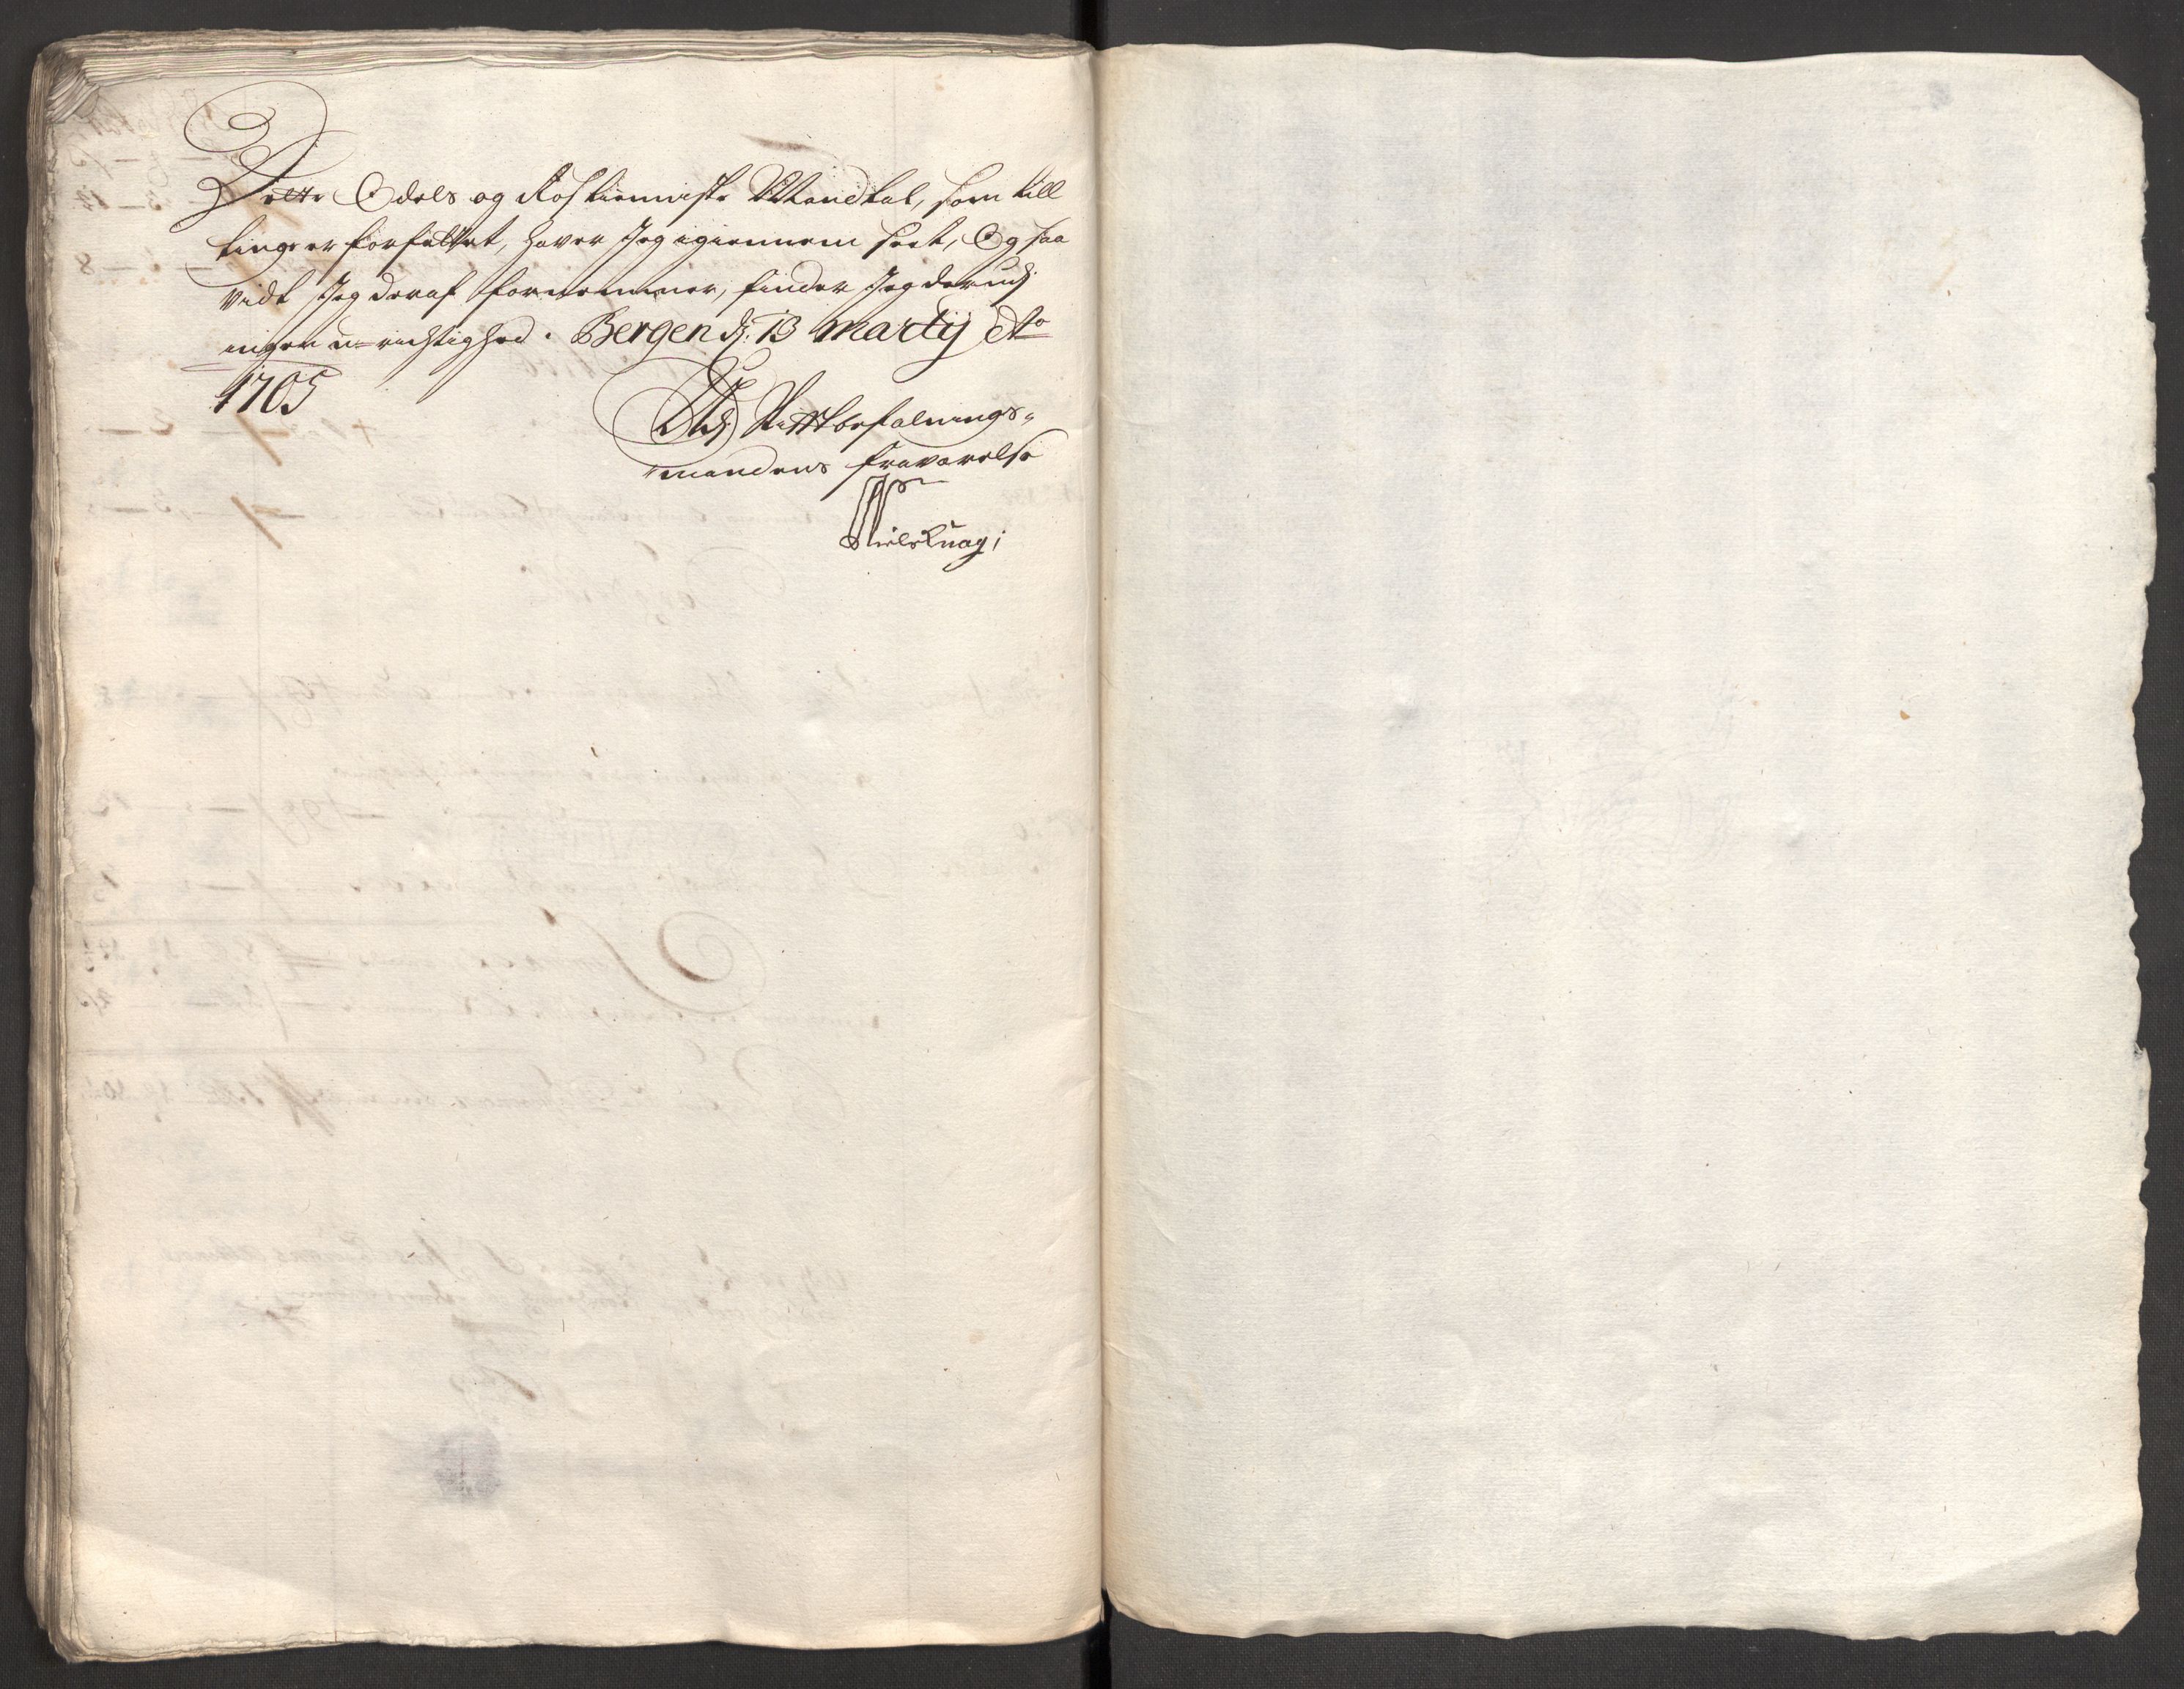 Dette Odels og Rostienniste Mandtal, som till
tinge er forfattet, haver Jeg igiennem seet, Og saa
vidt Jeg deraf fornemmer, finder Jeg derudj
ingen u-richtighed. Bergen dj: 13 Martij Ao
1705
Udj Stiftbefalnings-
mandens fraværelse
Niels Knag;